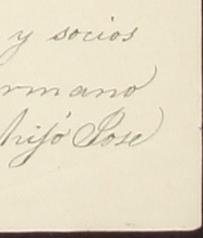 y socios
rmano
hijo Jose